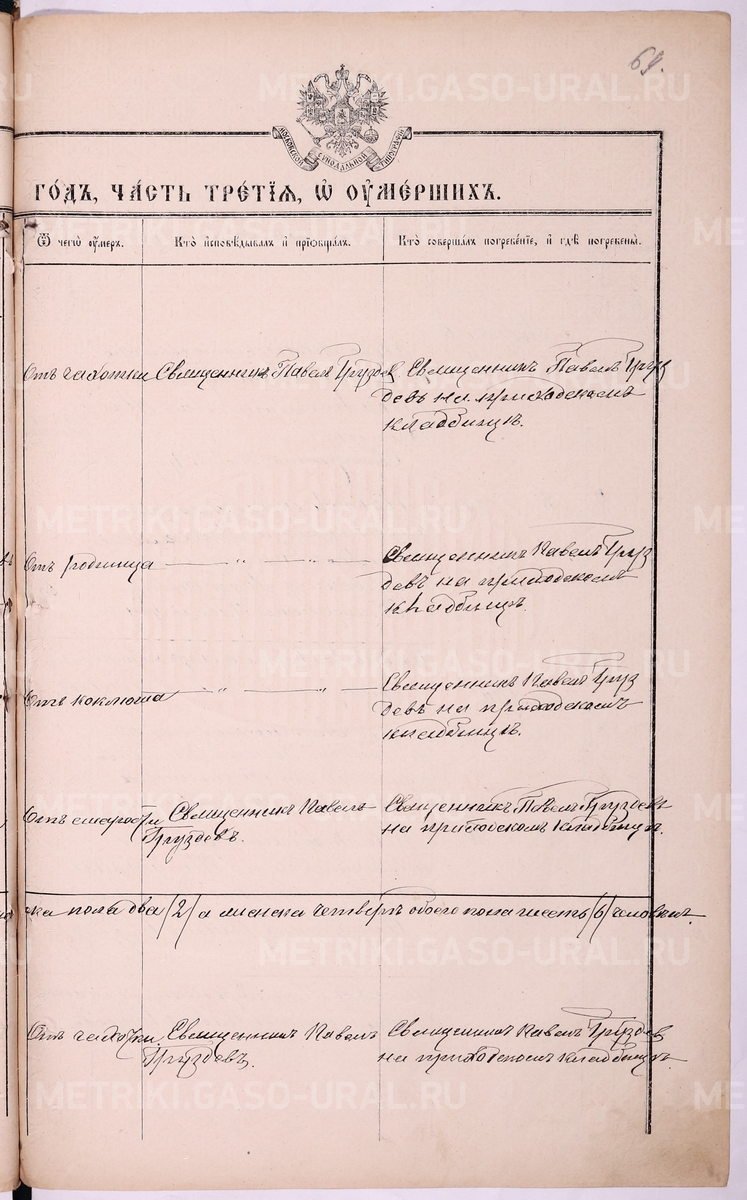 69.
МОСКОВСКОЙ СѴНОДАЛЬНОЙ ТИПОГРАФІИ
ГО́ДЪ, ЧА́СТЬ ТРЕ́ТІѦ, Ѡ҆ ОУ҆МЕ́РШИХЪ.
Ѿ чегѡ̀ оу҆́меръ.
Кто̀ и҆сповѣ́дывалъ и҆ прїѡбща́лъ.
Кто̀ соверша́лъ погребе́нїе, и҆ гдѣ̀ погребены̀.
Отъ чахотки
Священникъ Павелъ Груздев
Священникъ Павелъ Груз
девъ на приходскомъ
кладбищѣ.
Отъ родимца
— „ — „ —
Священникъ Павелъ Груз
девъ на приходскомъ
кладбищѣ.
Отъ коклюша
— „ — „ —
Священникъ Павелъ Груз
девъ на приходскомъ
кладбищѣ.
Отъ старости
Священникъ Павелъ
Груздевъ.
Священникъ Павелъ Груздевъ
на приходскомъ кладбищѣ.
ска пола два /2/ а женска четверо обоего пола шесть /6/ человѣкъ.
Отъ чахотки
Священникъ Павелъ
Груздевъ.
Священникъ Павелъ Груздев
на приходскомъ кладбищѣ
METRIKI.GASO-URAL.RU